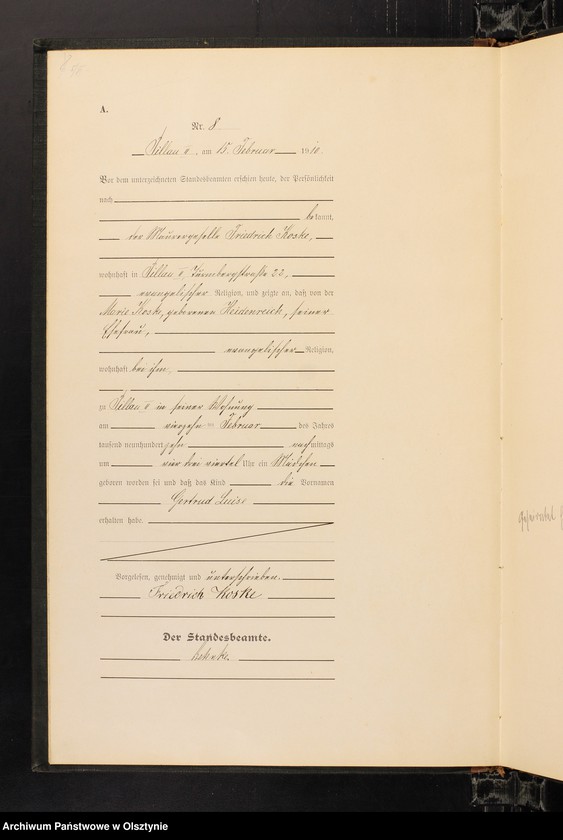 A.
Nr. 8
Pillau II, am 15. Februar 1910.
Vor dem unterzeichneten Standesbeamten erschien heute, der Persönlichkeit
nach
bekannt,
der Maurergeselle Friedrich Koske,
wohnhaft in Pillau II, Turmbergstraße 22,
evangelischer Religion, und zeigte an, daß von der
Marie Koske, geborenen Heidenreich, seiner
Ehefrau,
evangelischer Religion,
wohnhaft bei ihm,
zu Pillau II in seiner Wohnung
am vierzehnten Februar des Jahres
tausend neunhundert zehn nachmittags
um vier drei viertel Uhr ein Mädchen
geboren worden sei und daß das Kind die Vornamen
Gertrud Luise
erhalten habe.
Vorgelesen, genehmigt und unterschrieben.
Friedrich Koske
Der Standesbeamte.
Archiwum Państwowe w Olsztynie